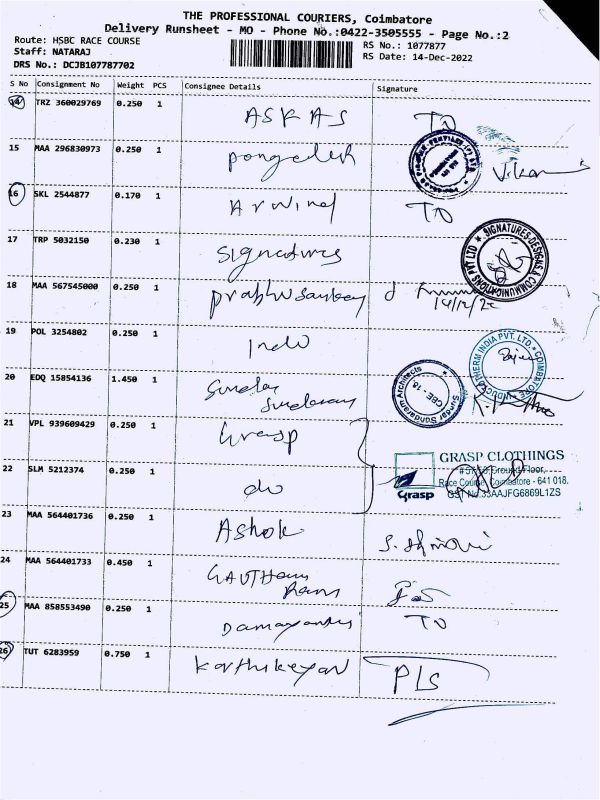 THE PROFESSIONAL COURIERS, Coimbatore
Delivery Runsheet - MO - Phone No.:0422-3505555 - Page No.:2
Route: HSBC RACE COURSE
RS No.: 1077877
Staff: NATARAJ
RS Date: 14-Dec-2022
DRS No.: DCJB107787702
S No Consignment No Weight PCS Consignee Details Signature
14 TRZ 360029769 0.250 1 ASKAS TO
15 MAA 296830973 0.250 1
16 SKL 2544877 0.170 1 Arwind TO
17 TRP 5032150 0.230 1 Signatures
SIGNATURES DESIGNS & COMUNICATIONS PVT LTD
18 MAA 567545000 0.250 1 Prabhu Sankey
14/12/22
19 POL 3254802 0.250 1 Indo
INDUCTOTHERM INDIA PVT. LTD. COIMBATORE
20 EDQ 15854136 1.450 1 Sundar
Sundaram
Sundar Sundaram Architects
CBE - 18
21 VPL 939609429 0.250 1 Grasp
GRASP CLOTHINGS
Ground Floor,
22 SLM 5212374 0.250 1 do
Race Course, Coimbatore - 641 018.
Grasp GST No.33AAJFG6869L1ZS
23 MAA 564401736 0.250 1 Ashok
24 MAA 564401733 0.450 1 GAUTHAM
Ram
25 MAA 858553490 0.250 1 Damayanthi TO
26 TUT 6283959 0.750 1 Karthikeyan PLS